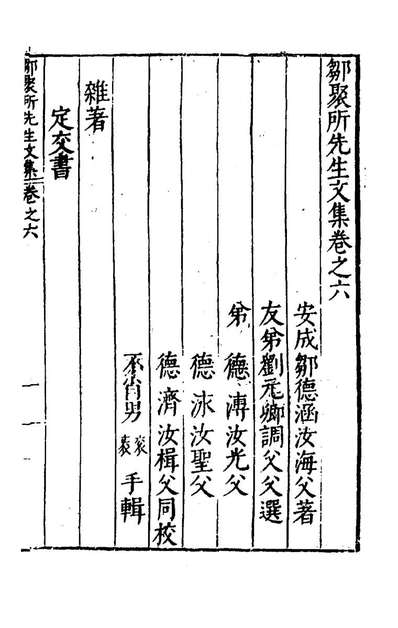 鄒聚所先生文集卷之六
安成鄒德涵汝海父著
友弟劉元卿調父父選
弟德溥汝光父
德泳汝聖父
德濟汝楫父同校
不肖男手輯
雜著
定交書
鄒聚所先生文集卷之六
一